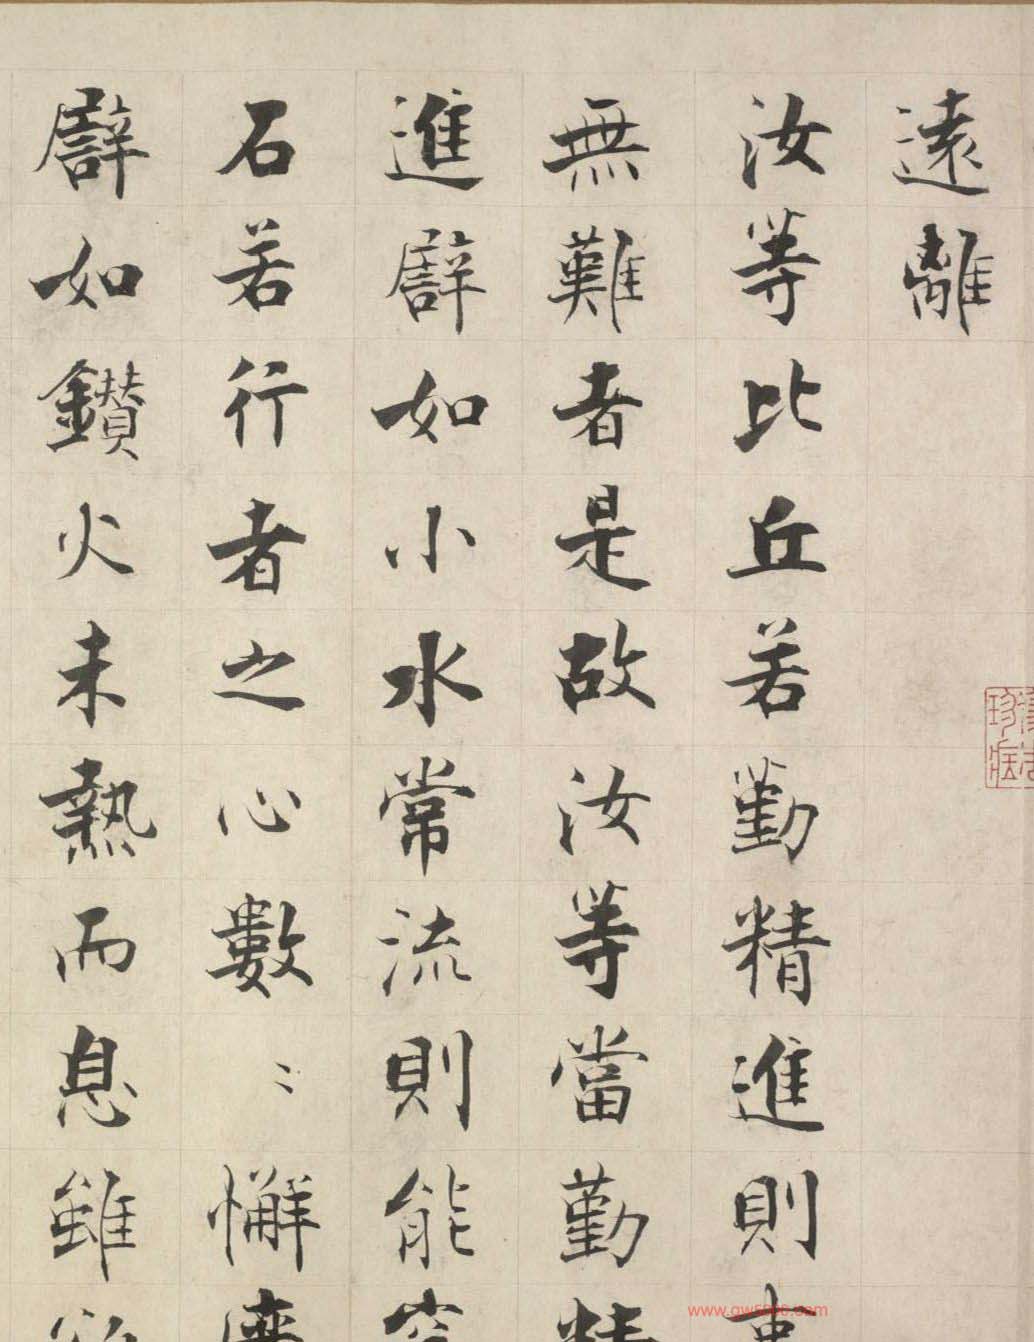 遠離
汝等比丘若勤精進則事
無難者是故汝等當勤精
進譬如小水常流則能穿
石若行者之心數〻懈廢
譬如鑽火未熱而息雖欲
珍藏